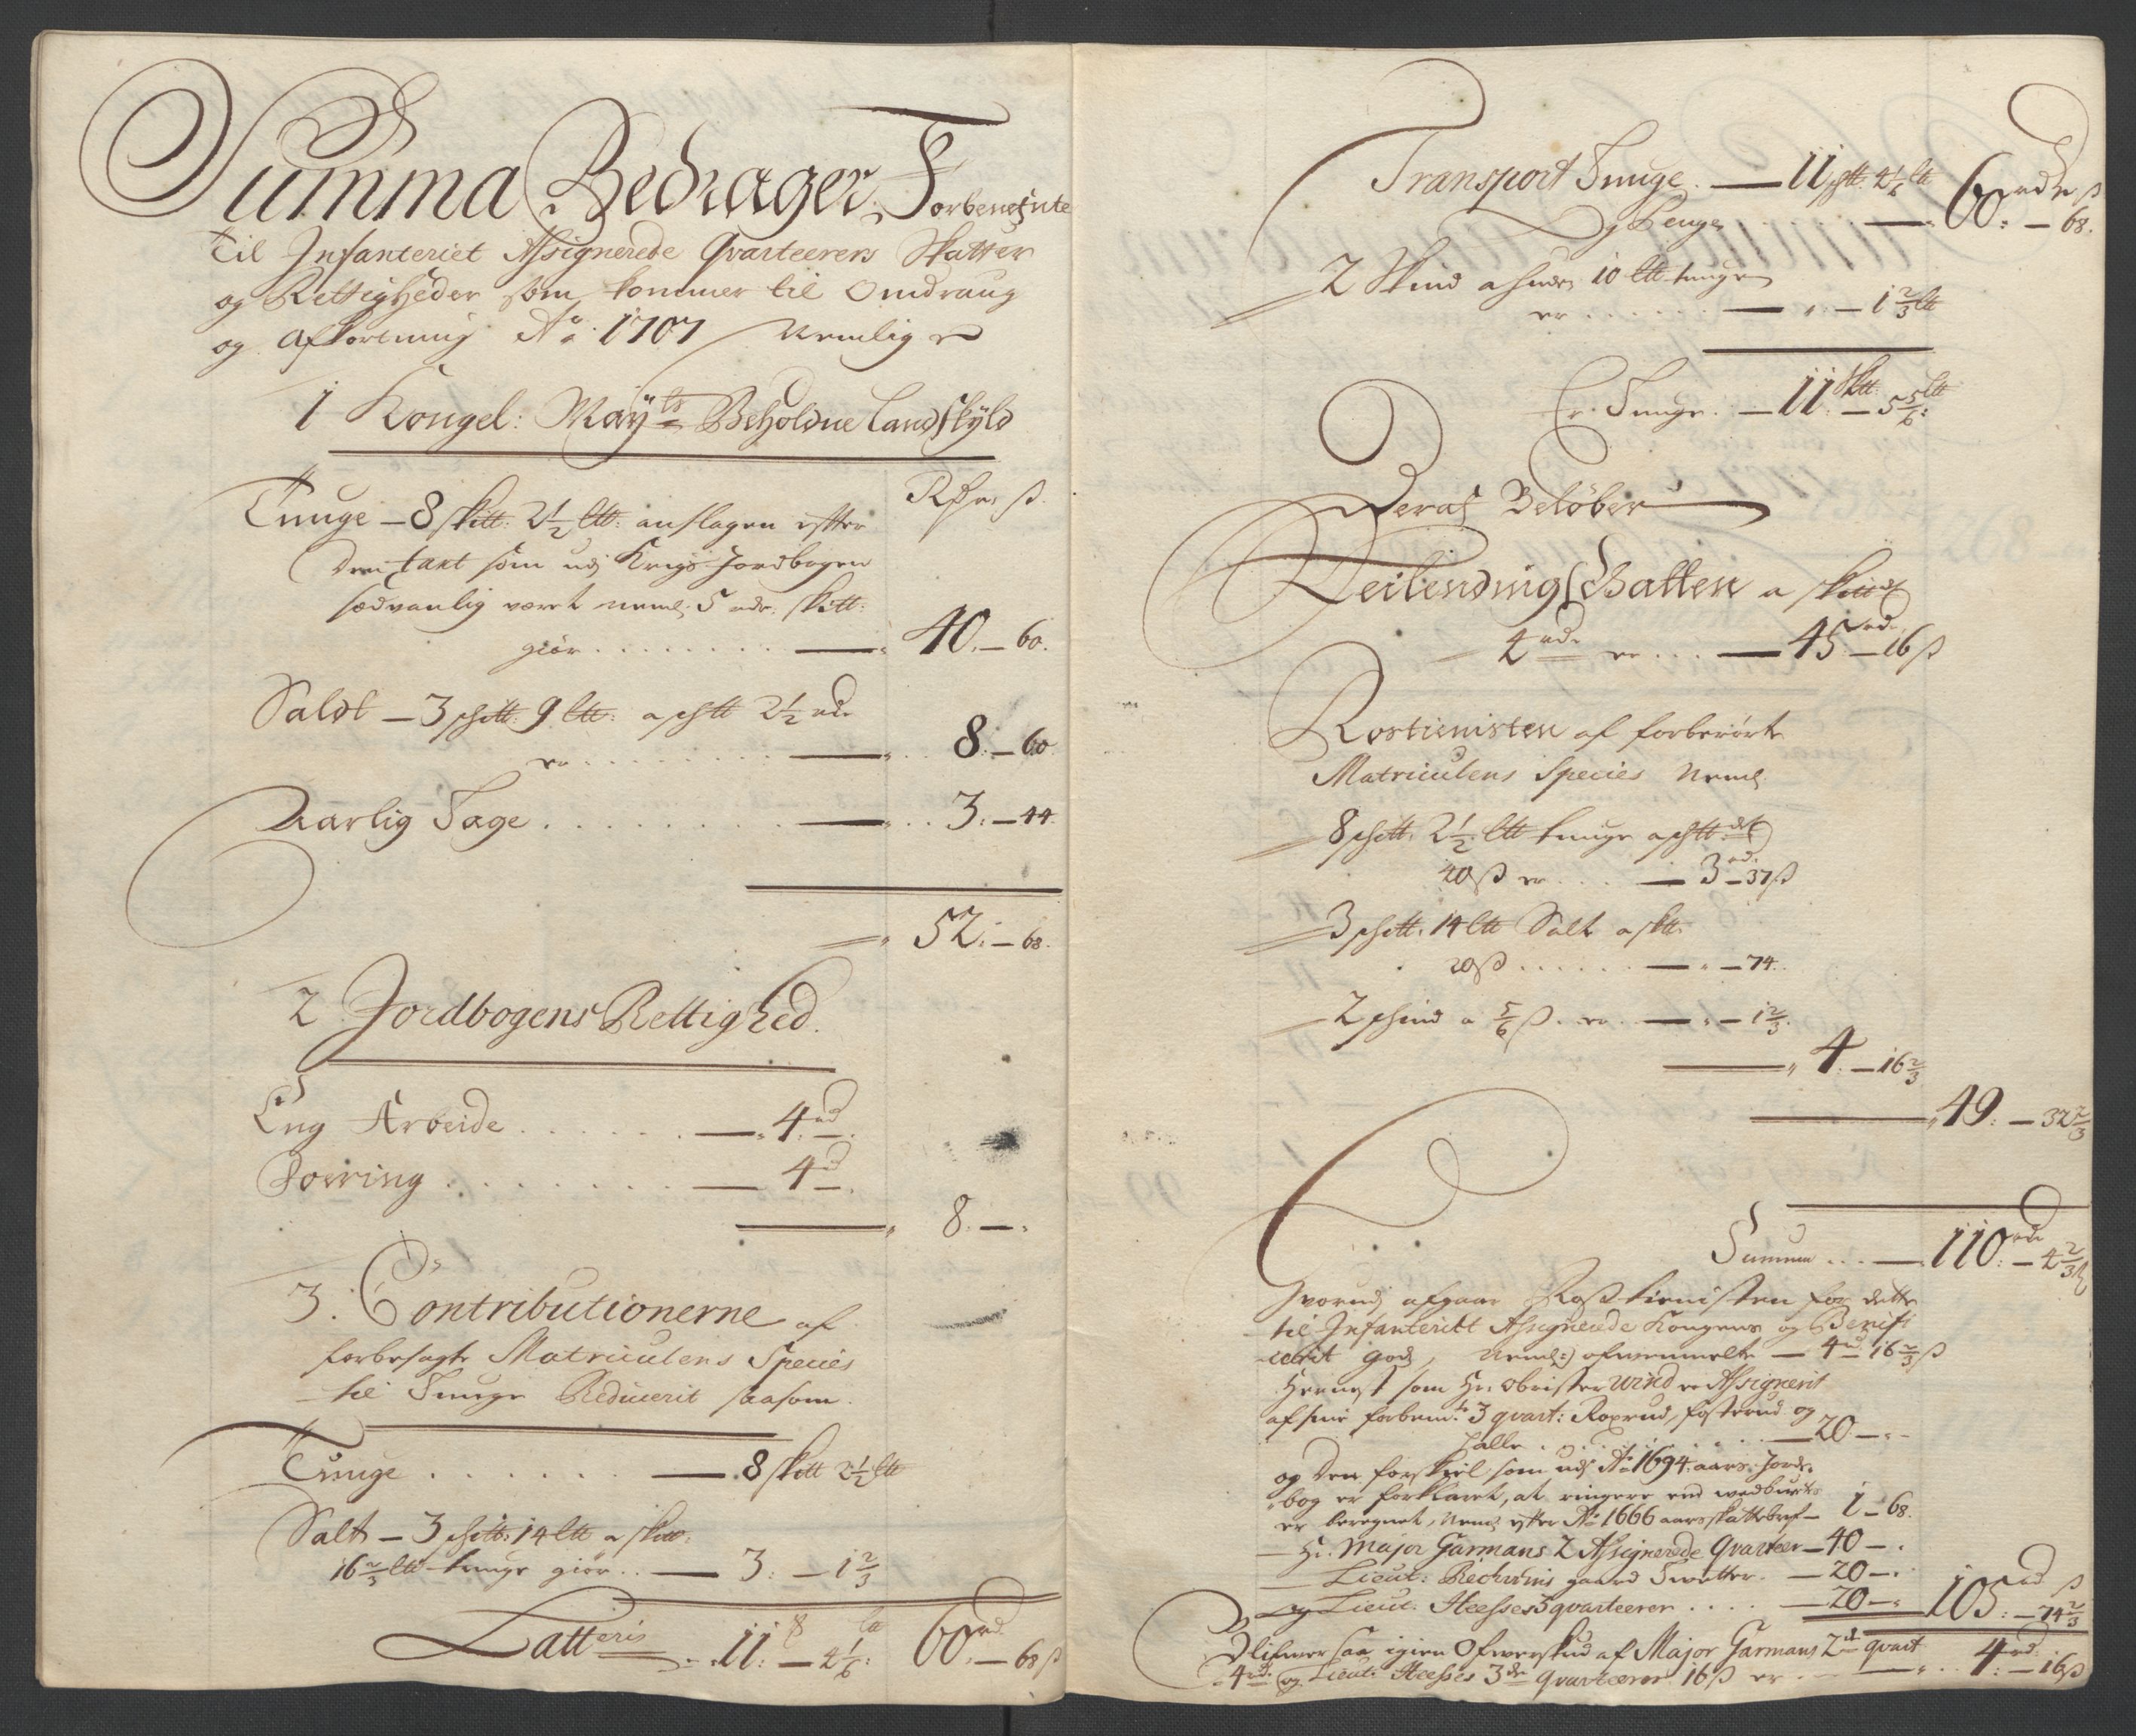 Summa Bedrager Forbenefnte
til Infanteriet Assignerede Qvarteerers Skatter
og Rettigheder som kommer til Omdraug
og Afkortning Ao. 1707 Nemlig
1 Kongel: Mayts Beholdne Landskyld
Rdr. ß.
Tunge – 8 skitt: 2½ ltt: anslagen efter
den taxt som udj Krigs Jordbogen
sædvanlig været neml: 5 rdr. skitt:
giør . . . . . . . . — 40. – 60.
Saldt – 3 schtt: 9 ltt: a schtt 2½ rdr
er . . . . . . . . . — 8. – 60
Aarlig Tage . . . . . . . . — 3. – 44.
52. – 68.
2 Jordbogens Rettighed.
Eng Arbeide . . . . . . — 4 rd –.
Foering . . . . . . . . — 4 rd –.
8. –.
3. Contributionerne af
forbesagte Matriculens Species
til Tunge Reducerit saasom.
Tunge . . . . . . — 8 skitt 2½ ltt
Salt – 3 schtt: 14 ltt a skitt:
16⅔ ltt tunge giør . . — 3: – 1⅔
Latteris – 11: – 4⅙: 60 rd. – 68 ß
Transport Tunge. — 11 schtt: 4⅙ ltt rdr ß
Penge . . . . — 60: – 68.
2 Skind a huden 10 ltt tunge
er . . . . . . — „ – 1⅔ ltt
Er Tunge. – 11 skitt: – 5⅚ ltt:
Deraf Beløber
Leilendings Skatten a skitt
4 rdr er . . . — 45 rdr – 16 ß
Rostienisten af forberørte
Matriculens Species Neml.
8 schtt: 2½ ltt tunge a schtt
40 ß er . . . — 3 rd. – 37 ß
3 schtt: 14 ltt Salt a skitt:
20 ß . . . . . . — „ – 74.
2 schind a ⅚ ß. er. — „ – 1⅔.
4. – 16⅔
49: – 32⅔
Summa . . . — 110 rdr: – 4⅔ ß
Hvorudj afgaar Rostienisten for dette
til Infanteriet Assignerede Kongens og Benifi-
cerit gods, Neml: — 4 rd 16⅔ ß
Hernest som Hr. Obrister Wind er Assignerit
af sine forbem.te 3 qvart: Roperud, fosterud og
Halle . . . . . . . — 20 – „ –
og den forskiel som udj Ao 1694 aars Jorde-
bog er forklaret, at ringere end
er beregnet, Neml: efter Ao 1666 aars skattebref – 1 – 68.
— Hr. Major Garmans 2 Assignerede Qvarteer – 40 – .
— Lieut: gaard Twetter. — 20 – .
og Lieut. Heesses 3 qvarteerer . . . . — 20 – „ 105 rd: – 74⅔ ß
Blifver saa igien Ofverskud af Major Garmans 2de qvart
4 rd. og Lieut: Heesses 3de Qvarteerer 16 ß er — . . 4 rd: – 16 ß